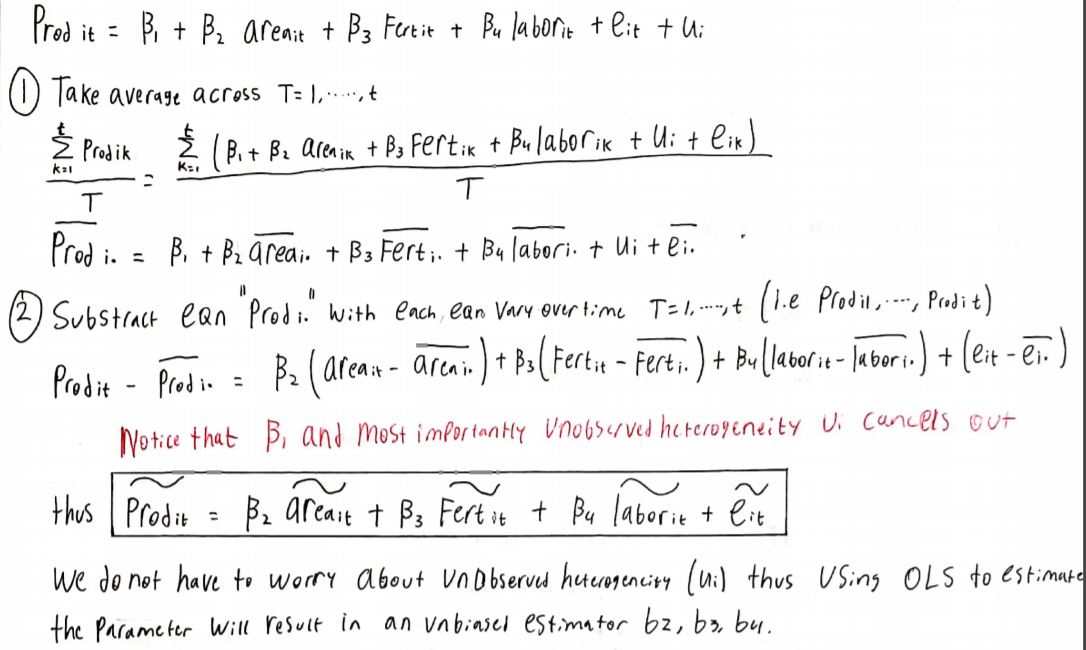 Prod it = β₁ + β₂ areait + β₃ Fertit + β₄ laborit + eit + ui
① Take average across T=1,.....,t
t∑k=1 Prodik / T = t∑k=1 (β₁ + β₂ areaik + β₃ Fertik + β₄ laborik + Ui + eik) / T
P̅r̅o̅d̅ i. = β₁ + β₂ a̅r̅e̅a̅i. + β₃ F̅e̅r̅t̅i. + β₄ l̅a̅b̅o̅r̅i. + Ui + e̅i.
② Substract eqn "Prod i." with each eqn Vary over time T=1,.....,t (i.e Prodi1,...., Prodit)
Prodit - P̅r̅o̅d̅i. = β₂ (areait - a̅r̅e̅a̅i.) + β₃ (Fertit - F̅e̅r̅t̅i.) + β₄ (laborit - l̅a̅b̅o̅r̅i.) + (eit - e̅i.)
Notice that β₁ and most importantly Unobserved heterogeneity Ui cancels out
thus P̃rodit = β₂ ãreait + β₃ F̃ertit + β₄ l̃aborit + ẽit
We do not have to worry about UnObserved heterogeneity (ui) thus Using OLS to estimate
the Parameter Will result in an unbiased estimator b2, b3, b4.